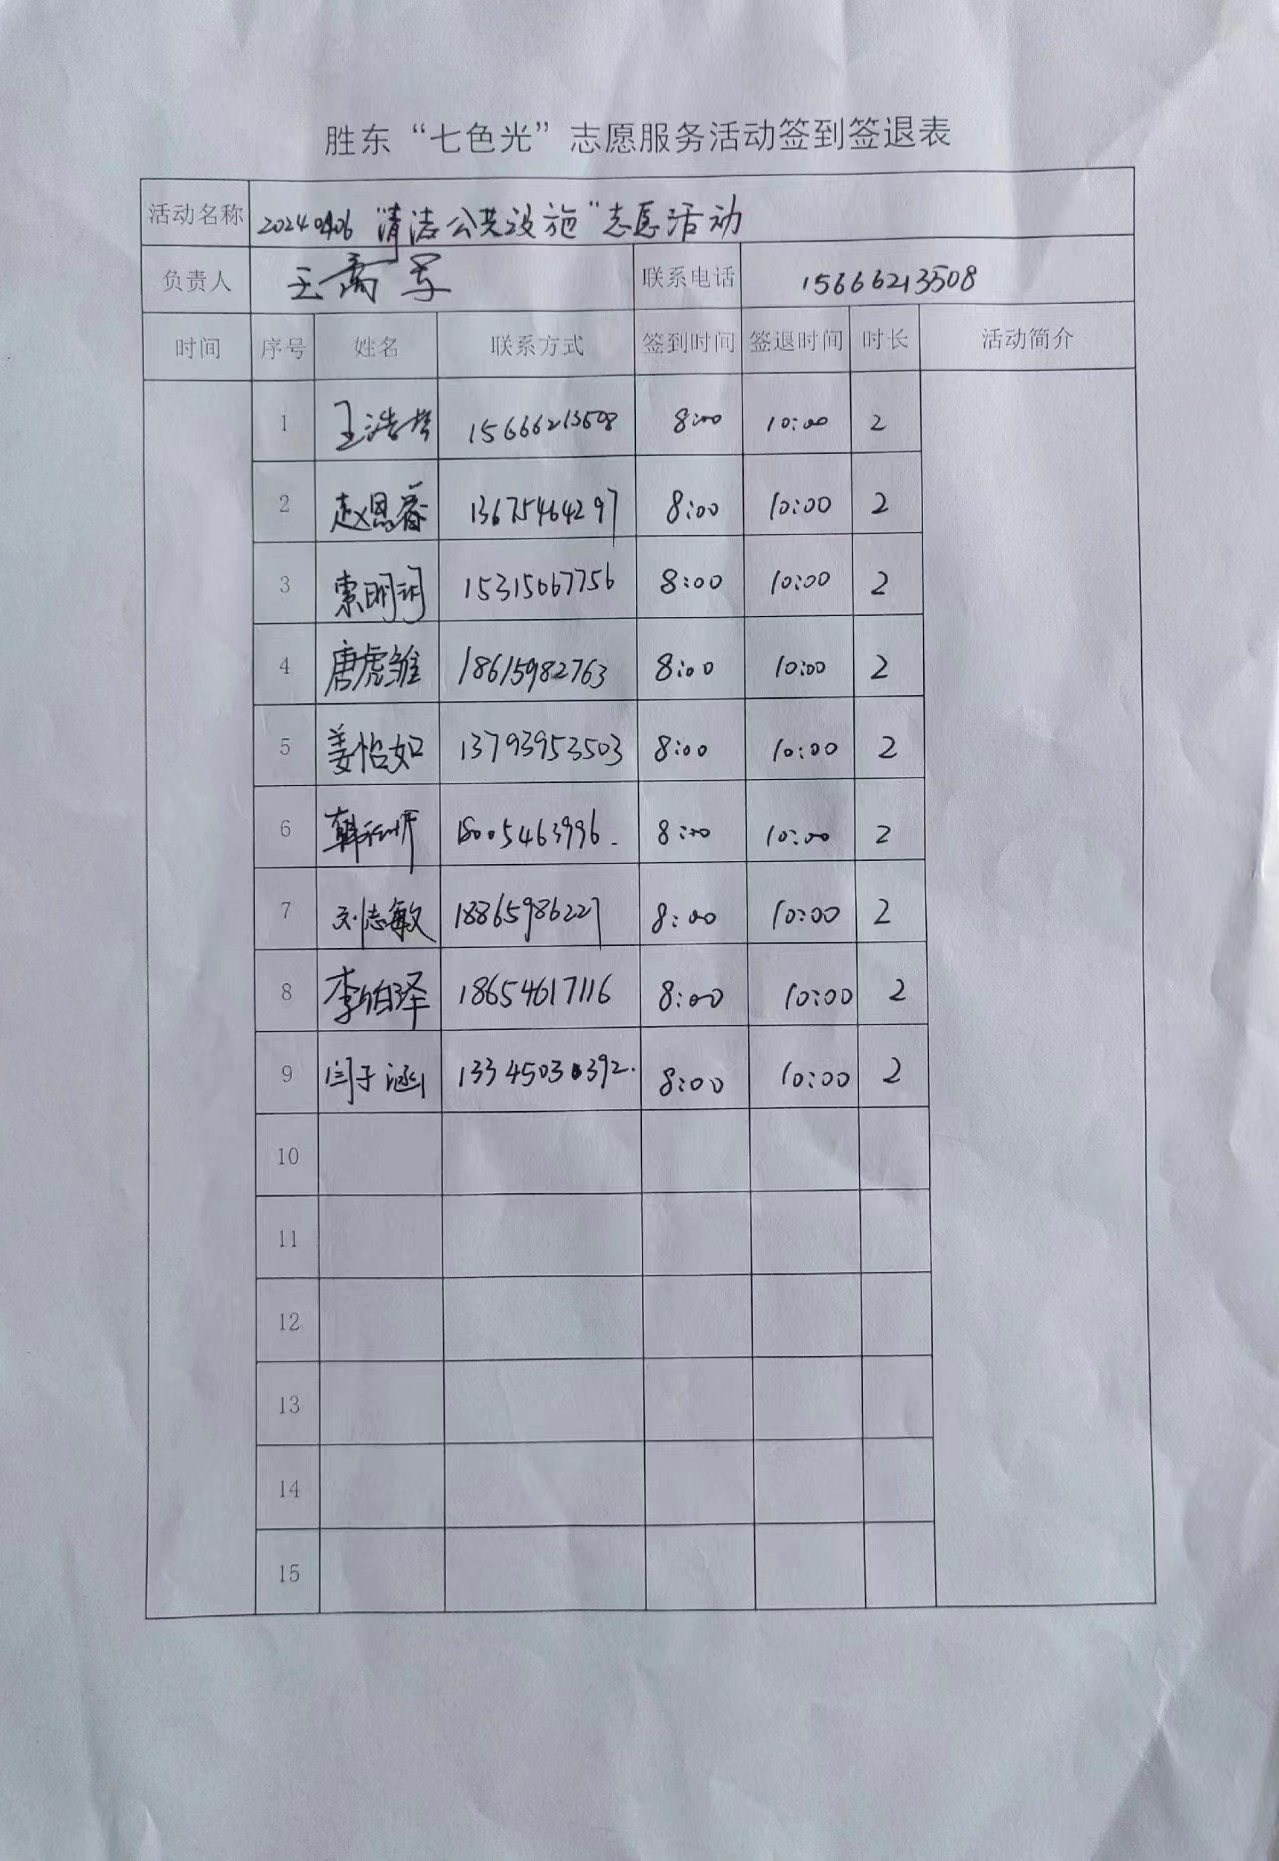 胜东“七色光”志愿服务活动签到签退表
活动名称 20240406“清洁公共设施”志愿活动
负责人 王 联系电话 15666213508
时间 序号 姓名 联系方式 签到时间 签退时间 时长 活动简介
1 王浩 15666213508 8:00 10:00 2
2 赵恩 13675464297 8:00 10:00 2
3 索明珂 15315067756 8:00 10:00 2
4 唐虎雏 18615982763 8:00 10:00 2
5 姜怡如 13793953503 8:00 10:00 2
6 韩 18005463996. 8:00 10:00 2
7 刘志敏 18865986227 8:00 10:00 2
8 李伯泽 18654617116 8:00 10:00 2
9 闫子涵 13345030392. 8:00 10:00 2
10
11
12
13
14
15